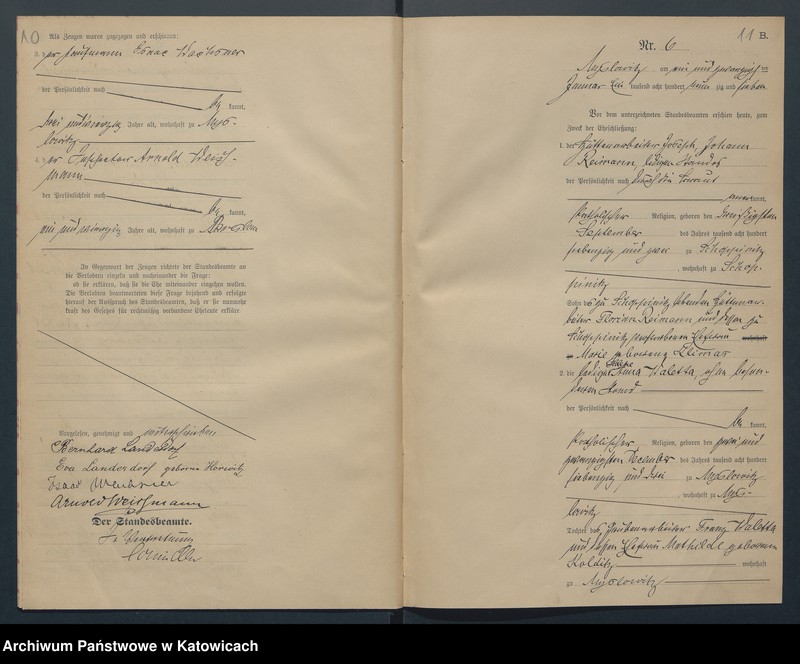 10
Als Zeugen waren zugezogen und erschienen:
3. der Kaufmann Isaac Wachsner
der Persönlichkeit nach
be kannt,
drei und vierzig Jahre alt, wohnhaft zu Mys-
lowitz
4. der Inspector Arnold Weich-
mann
der Persönlichkeit nach
be kannt,
Jahre alt, wohnhaft zu Breslau
In Gegenwart der Zeugen richtete der Standesbeamte an
die Verlobten einzeln und nacheinander die Frage:
ob sie erklären, daß sie die Ehe miteinander eingehen wollen.
Die Verlobten beantworteten diese Frage bejahend und erfolgte
hierauf der Ausspruch des Standesbeamten, daß er sie nunmehr
kraft des Gesetzes für rechtmäßig verbundene Eheleute erkläre.
Vorgelesen, genehmigt und unterschrieben
Bernhard Landsdorf
Eva Landerdorf geborene Horwitz
Isaac Wachsner
Arnold Weichmann
Der Standesbeamte.
In Vertretung
11 B.
Nr. 6
Myslowitz am ein und zwanzigsten
Januar Ein tausend acht hundert neun zig und sieben
Vor dem unterzeichneten Standesbeamten erschien heute, zum
Zweck der Eheschließung:
1. der Hüttenarbeiter Joseph, Johann
Reimann, ledigen Standes
der Persönlichkeit nach durch die Braut
anerkannt,
katholischer Religion, geboren den dreißigsten
September des Jahres tausend acht hundert
siebenzig und zwei zu Schoppinitz
, wohnhaft zu Schop-
pinitz
Sohn des zu Schoppinitz lebenden Hüttenar-
beiter Florian Reimann und dessen zu
Schoppinitz verstorbenen Ehefrau wohnhaft
Marie geborene Klimas
2. die ledige Anna Waletta, ohne beson-
deren Stand
der Persönlichkeit nach
be kannt,
katholischer Religion, geboren den zwei und
zwanzigsten Dezember des Jahres tausend acht hundert
siebenzig und drei zu Myslowitz
, wohnhaft zu Mys-
lowitz
Tochter des Grubenarbeiter Franz Waletta
und dessen Ehefrau Mathilde geborenen
Kolditz wohnhaft
zu Myslowitz
Archiwum Państwowe w Katowicach